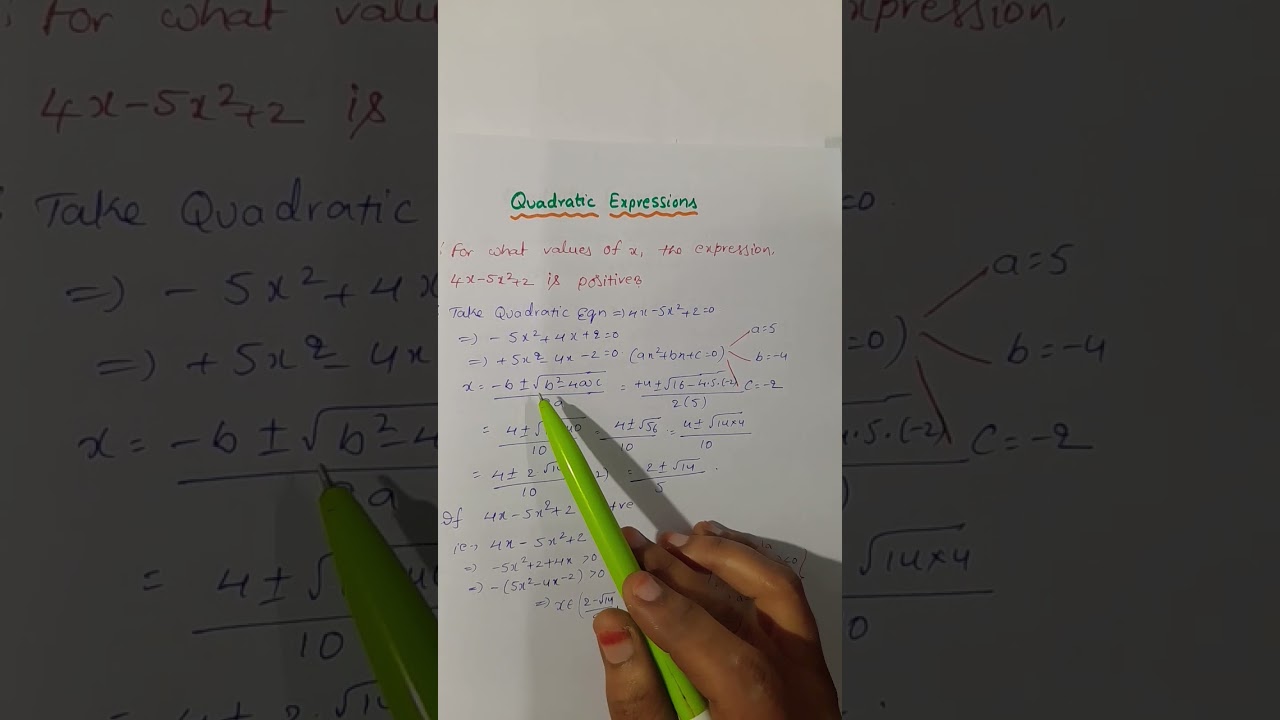 Quadratic Expressions
For what values of x, the expression,
4x-5x²+2 is positive
Take Quadratic Eqn =) 4x-5x²+2=0
=) -5x²+4x+2=0
=) +5x²-4x-2=0 (ax²+bx+c=0)
a=5
b=-4
c=-2
x = -b ± √b²-4ac = +4 ± √16-4.5.(-2)
a 2(5)
= 4±√ 40 = 4±√56 = 4±√14×4
10 10 10
= 4 ± 2 √14 = 2 ± √14 .
10 5
If 4x-5x²+2 +ve
ie., 4x-5x²+2
=) -5x²+2+4x >0
=) -(5x²-4x-2) >0
=) x∈ (2-√14